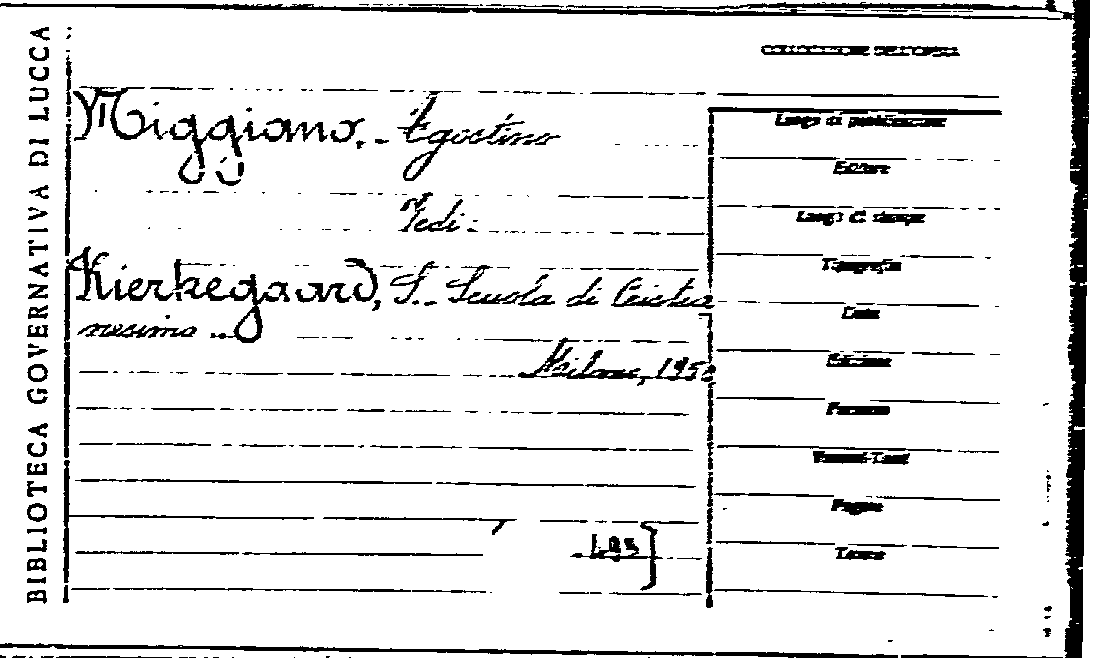 BIBLIOTECA GOVERNATIVA DI LUCCA
Miggiano, - Agostino
Vedi:
Kierkegaard, S. - Scuola di Cristia
nesimo ..
Milano, 195
Luogo di pubblicazione
Editore
Luogo di stampa
Tipografia
Data
Edizione
Formato
Pagine
Tavole